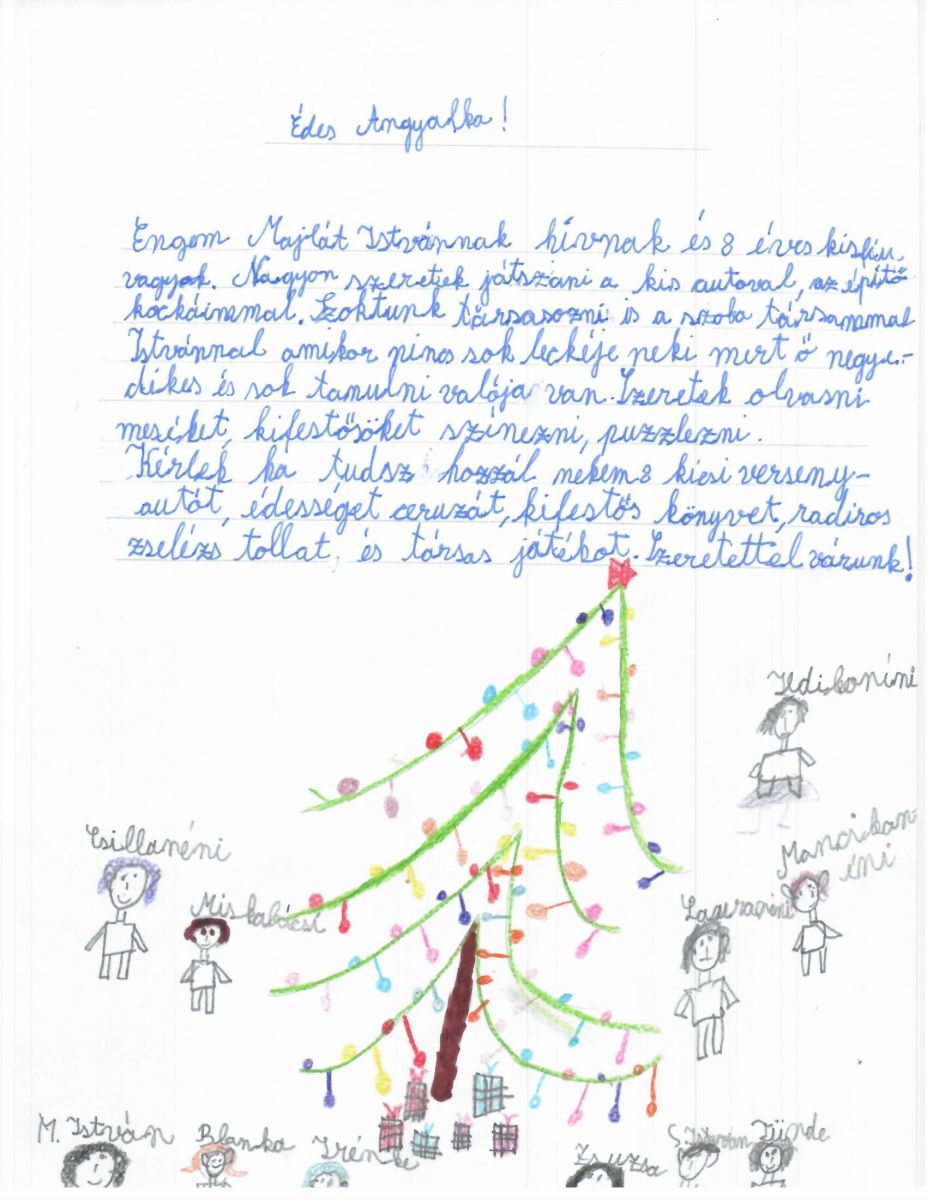 Édes Angyalka!
Engem Majlát Istvánnak hívnak és 8 éves kisfiu
vagyok. Nagyon szeretek játszani a kis autoval, az építő
kockáimmal. Szoktunk társasozni is a szoba társammal
Istvánnal amikor nincs sok leckéje neki mert ő negye-
dikes és sok tanulni valója van. Szeretek olvasni
meséket, kifestősöket színezni, puzzlezni.
Kérlek ha tudsz hozzál nekem 8 kicsi verseny-
autót, édességet ceruzát, kifestős könyvet, radiros
zselézs tollat, és társas játékot. Szeretettel várunk!
Ildikonéni
Csillanéni
Mancikan
éni
Miskabácsi
Lauranéni
M. István
Blanka
Irénke
Zsuzsa
S. István
Tünde